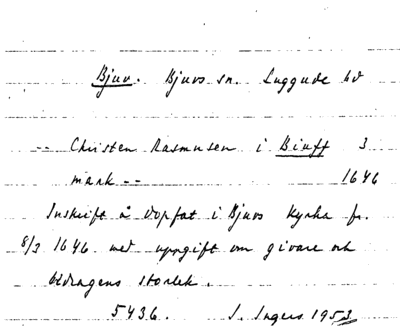 Bjuv. Bjuvs sn. Luggude hd
-- Christen Rasmusen i Biuff 3
mark -- 1646
Inskrift å dopfat i Bjuvs kyrka fr.
8/3 1646 med uppgift om givare och
bidragens storlek.
5436. I. Ingers 1953